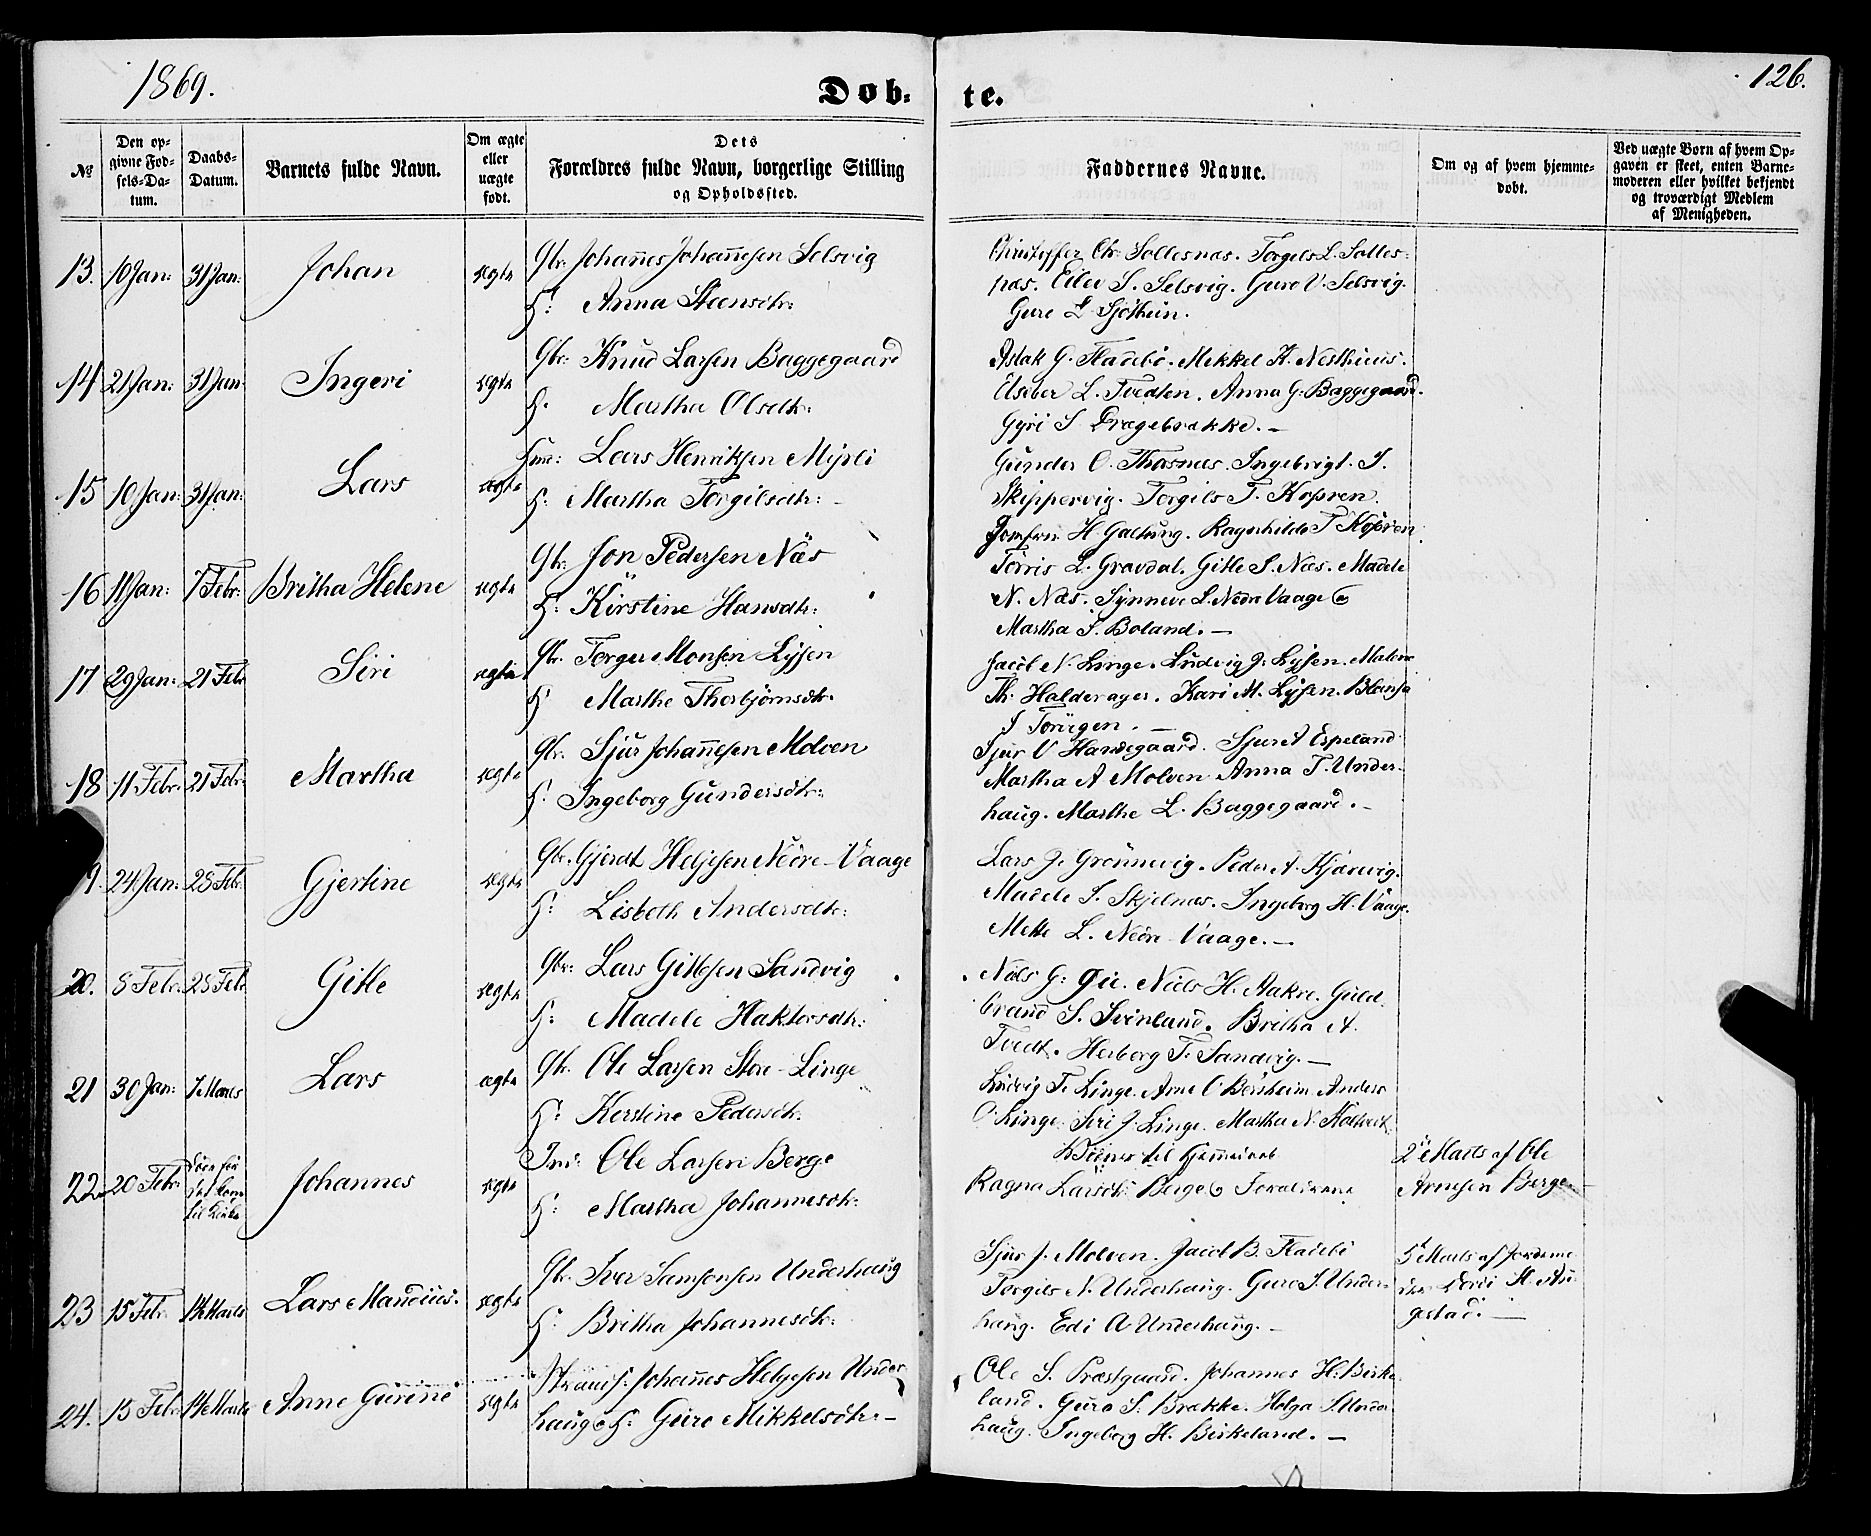 1869.
Døb-
te.
126.
№
Den op-
givne Fød-
sels-Da-
tum.
Daabs-
Datum.
Barnets fulde Navn.
Om ægte
eller
uægte
født.
Dets
Forældres fulde Navn, borgerlige Stilling
og Opholdssted.
Faddernes Navne.
Om og af hvem hjemme-
døbt.
Ved uægte Børn af hvem Op-
gaven er skeet, enten Barne-
moderen eller hvilket bekjendt
og troværdigt Medlem
af Menigheden.
13. 10 Jan: 31 Jan: Johan ægte Gbr. Johañes Johañesen Selsvig
H: Anna Steensdtr:
Christoffer Chr. Sollesnæs. Torgels L. Solles-
næs. Eilev S. Selsvig. Guro V. Selsvig.
Guro L. Sjöthun.
14 21 Jan: 31 Jan: Ingeri ægte Gbr: Knud Larsen Baggegaard
H. Martha Olsdtr:
Aslak G. Fladebö. Mikkel K. Nesthuus.
Elseber L. Tvedten. Anna G. Baggegaard.
Gyri S Drægebrække. —
15 10 Jan: 31 Jan: Lars ægte Huu: Lars Henriksen Myrli
H. Martha Torgilsdtr: -
Gunder O. Thorsnæs. Ingebrigt. I.
Skippervig. Torgils T. Kopren.
Jomfru H Galtung. Ragnhilde T Kopren.
16 11 Jan: 7 Febr: Britha Helene ægte Gbr. Jon Pedersen Næs
H: Kirstine Hansdtr:
Torris L. Gravdal. Gitle S. Næs. Madele
N. Næs. Synneve L. Nedre Vaage
Martha I. Boland. —
17 29 Jan: 21 Feb Siri ægte Gbr. Torger Monsen Lysen
H Marthe Thorbjörnsdtr.
Jacob N. Linge. Ludvig J. Lysen. Malene
Th. Halderager. Kari M. Lysen. Blansa
J Torvegen. —
18 11 Febr. 21 Febr. Martha ægte Gbr. Sjur Johañesen Molven
H. Ingeborg Gundersdtr:
Sjur V Handegaard. Sjur A Espeland
Martha A Molven Anna T. Under-
haug. Marthe L. Baggegaard. —
9. 24 Jan: 28 Feb. Gjertine ægte Gbr. Gjerdt Helgesen Nedre-Vaage
H: Lisbeth Andersdtr:
Lars J. Grönnevig. Peder A. Kjærevig.
Madele S. Skjelnæs. Ingeborg H. Vaage.
Mette L. Nedre Vaage. —
20. 8 Febr. 28 Feb Gitle ægte Gbr: Lars Gitlesen Sandvig
H: Madele Haktorsdtr:
Niels G. Niels H. Aakre. Guld-
brand S. Svinland. Britha A.
Tvedt. Herborg T. Sandvig. —
21 30 Jan: 7 Marts Lars ægte Gbr. Ole Larsen Store-Linge
H: Kerstine Pedersdtr.
Ludvig T. Linge. Arne O Börsheim. Anders
O. Linge. Siri J. Linge. Martha N.
22 20 Febr. Döde för
det kom
til Kirke Johannes ægte Ind: Ole Larsen Berge
H: Martha Johannesdtr:
Vidner til Hjemmedaab
Ragna Larsdtr. Berge & Forældrene
2 Marts af Ole
Arnesen Berge —
23 15 Feb. 14 Marts Lars Mandius. ægte Gbr. Iver Samsonsen Underhaug
H: Britha Johannesdtr:
Sjur J. Molven. Jacob B. Fladebö
Torgils N. Underhaug. Guro S. Under-
haug. Edi A Underhaug. —
5 Marts af Jordemo-
gestad. —
24. 13 Feb: 14 Marts Anne Gurine ægte Johañes Helgesen Under-
haug & H: Guro Mikkelsdtr. —
Ole S. Præstgaard. Johannes H. Birke-
land. Guro S. Brække. Helga S. Under-
haug. Ingeborg H. Birkeland. —